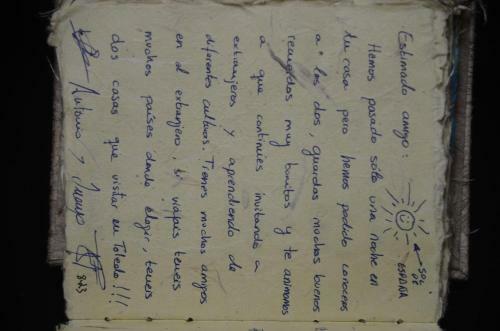 Estimado amigo:
SOL DE
ESPAÑA
Hemos pasado sólo una noche en
tu casa pero hemos podido conoceros
a los dos, guardas muchos buenos
recuerdos muy bonitos y te animamos
a que continues invitando a
extranjeros y aprendiendo de
diferentes culturas. Tienes muchos amigos
en el extranjero, si viajais teneis
muchos paises donde elegir, teneis
dos casas que visitar en Toledo!!!
Antonio y